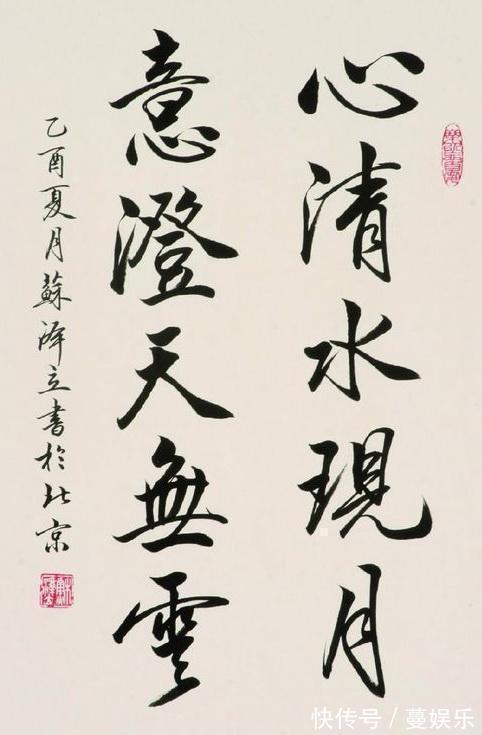 心清水現月
意澄天無雲
乙酉夏月蘇澤立書於北京
快传号/蔓娱乐